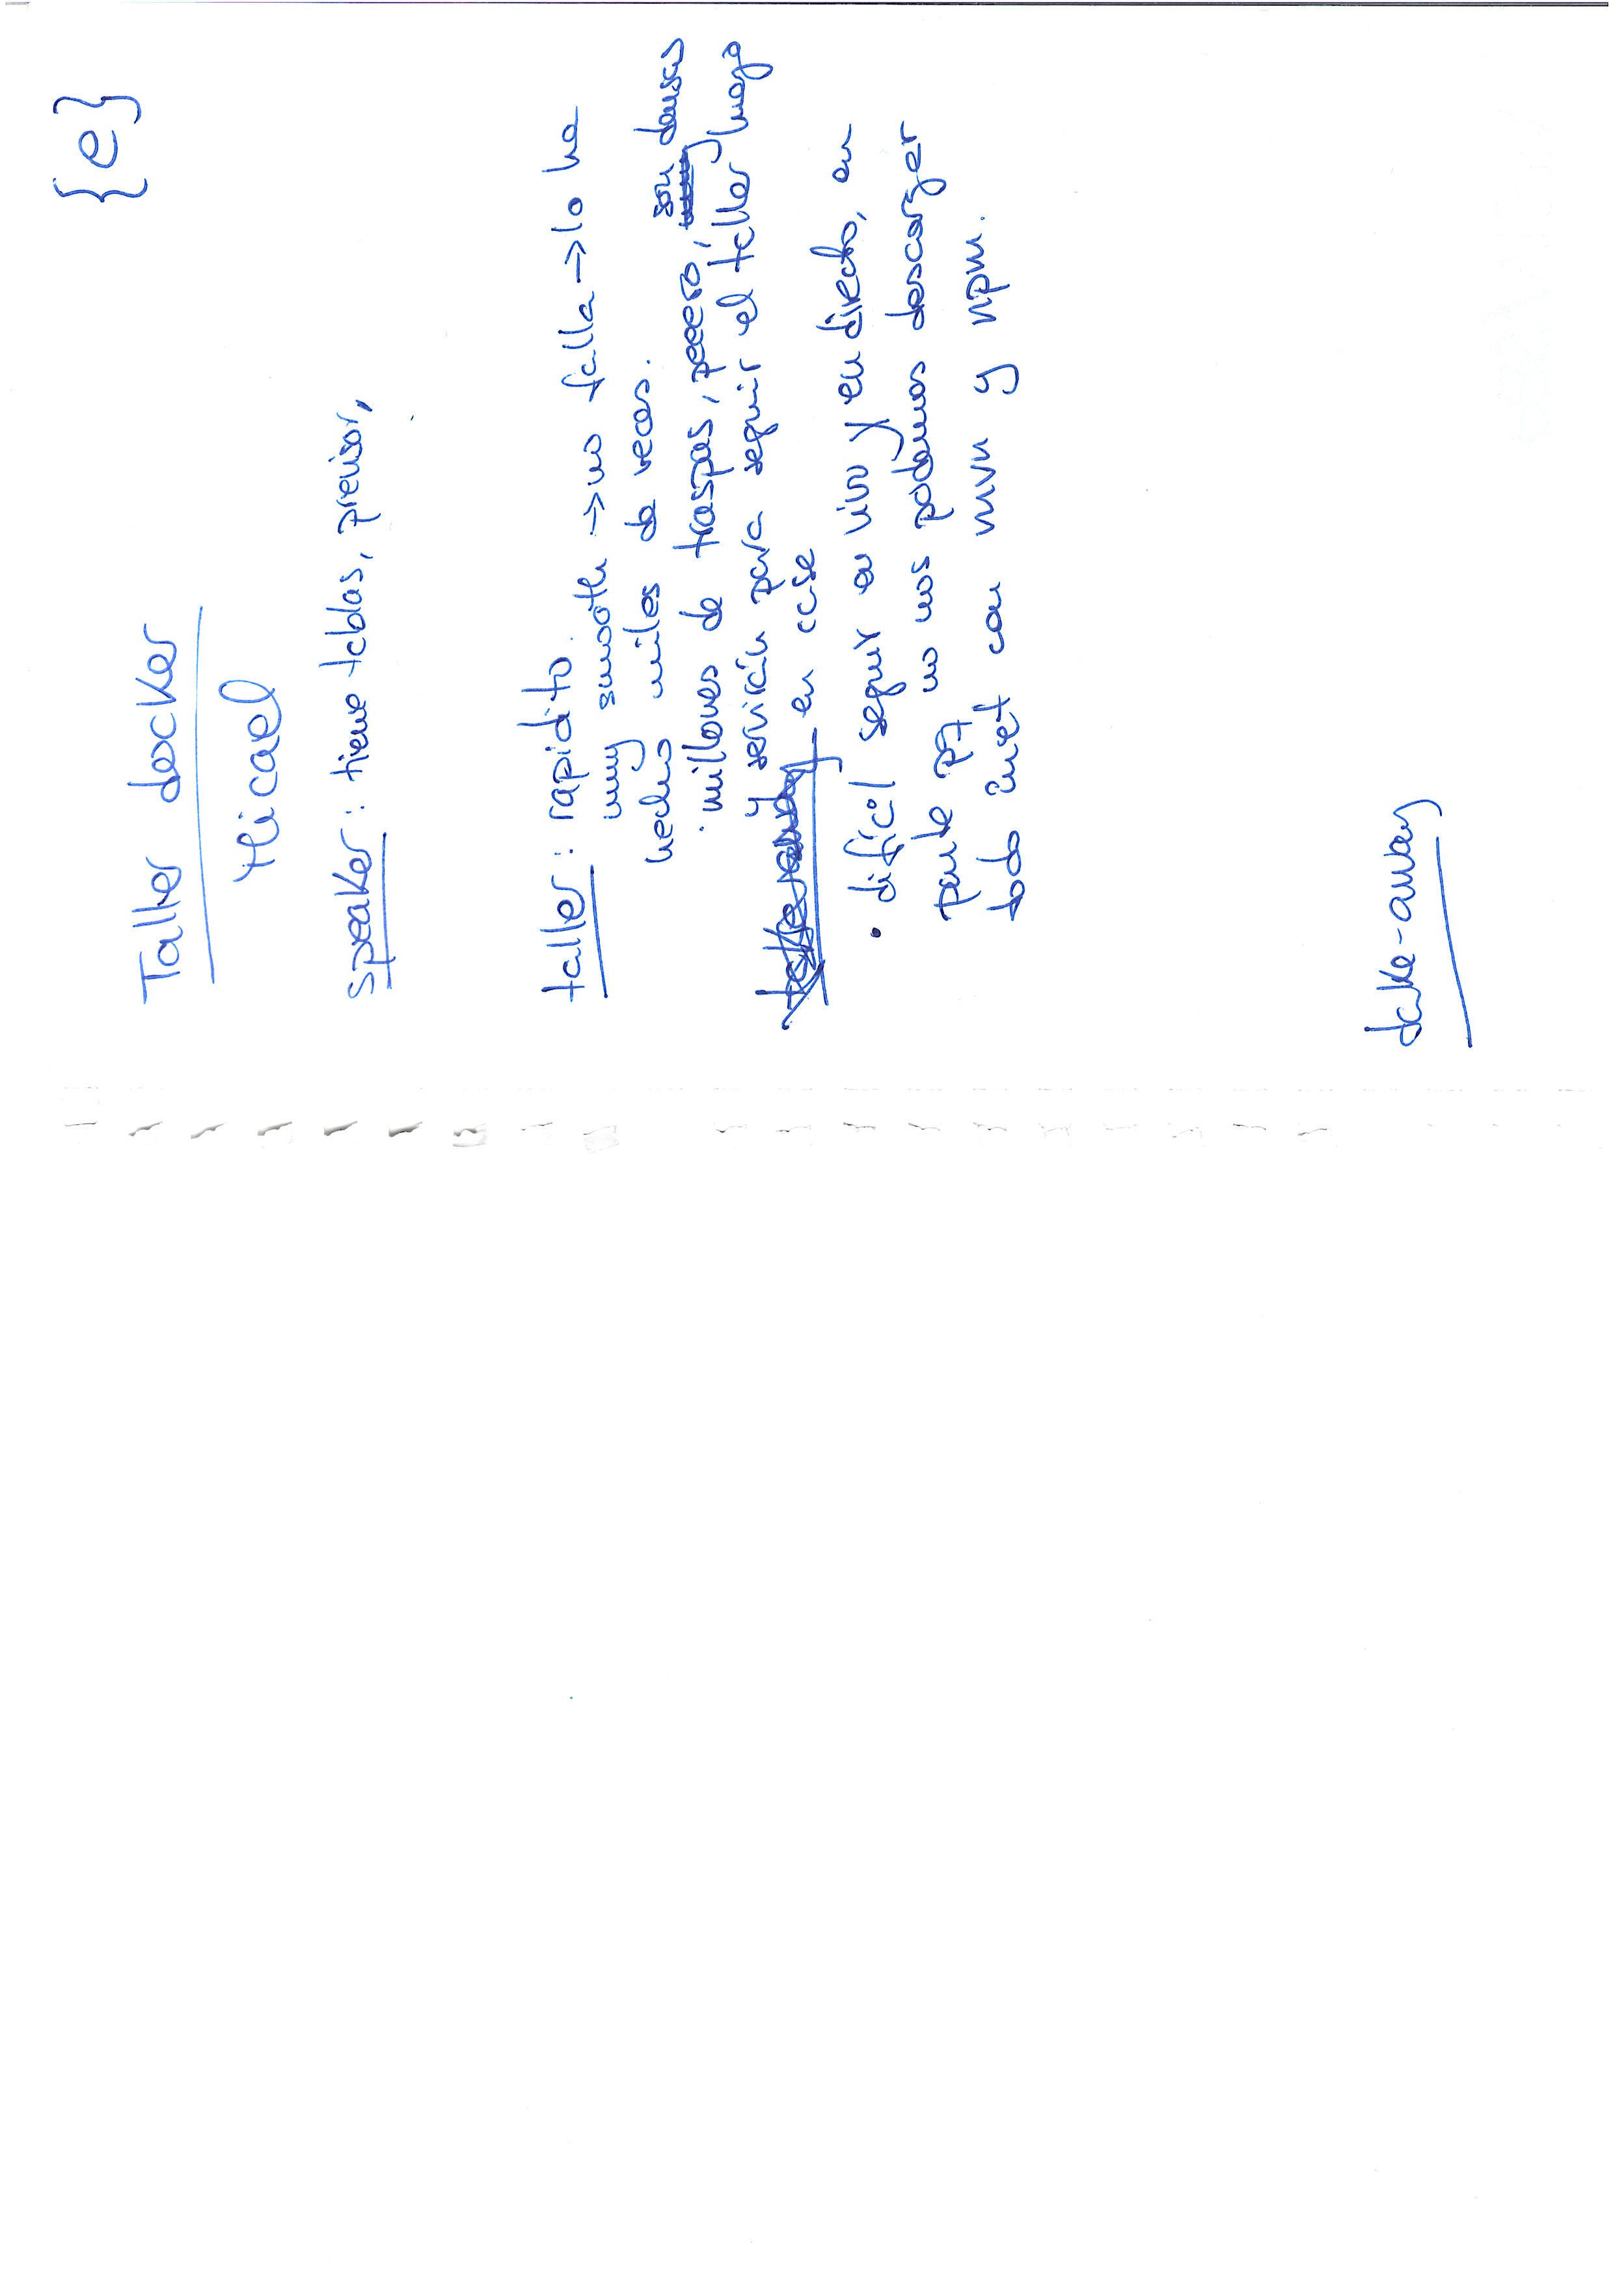 {e}
Taller docker
Micael
speaker: tiene tablas, previsor,
taller: rapidito.
muy smooth → no falla → lo ha
hecho miles de veces.
· millones de traspas, peeero, son densas
y servirán para seguir el taller luego
en casa
• difícil seguir en vivo y en directo, en
parte pq no nos podemos descargar
todo inet con mvn y npm.
take-away